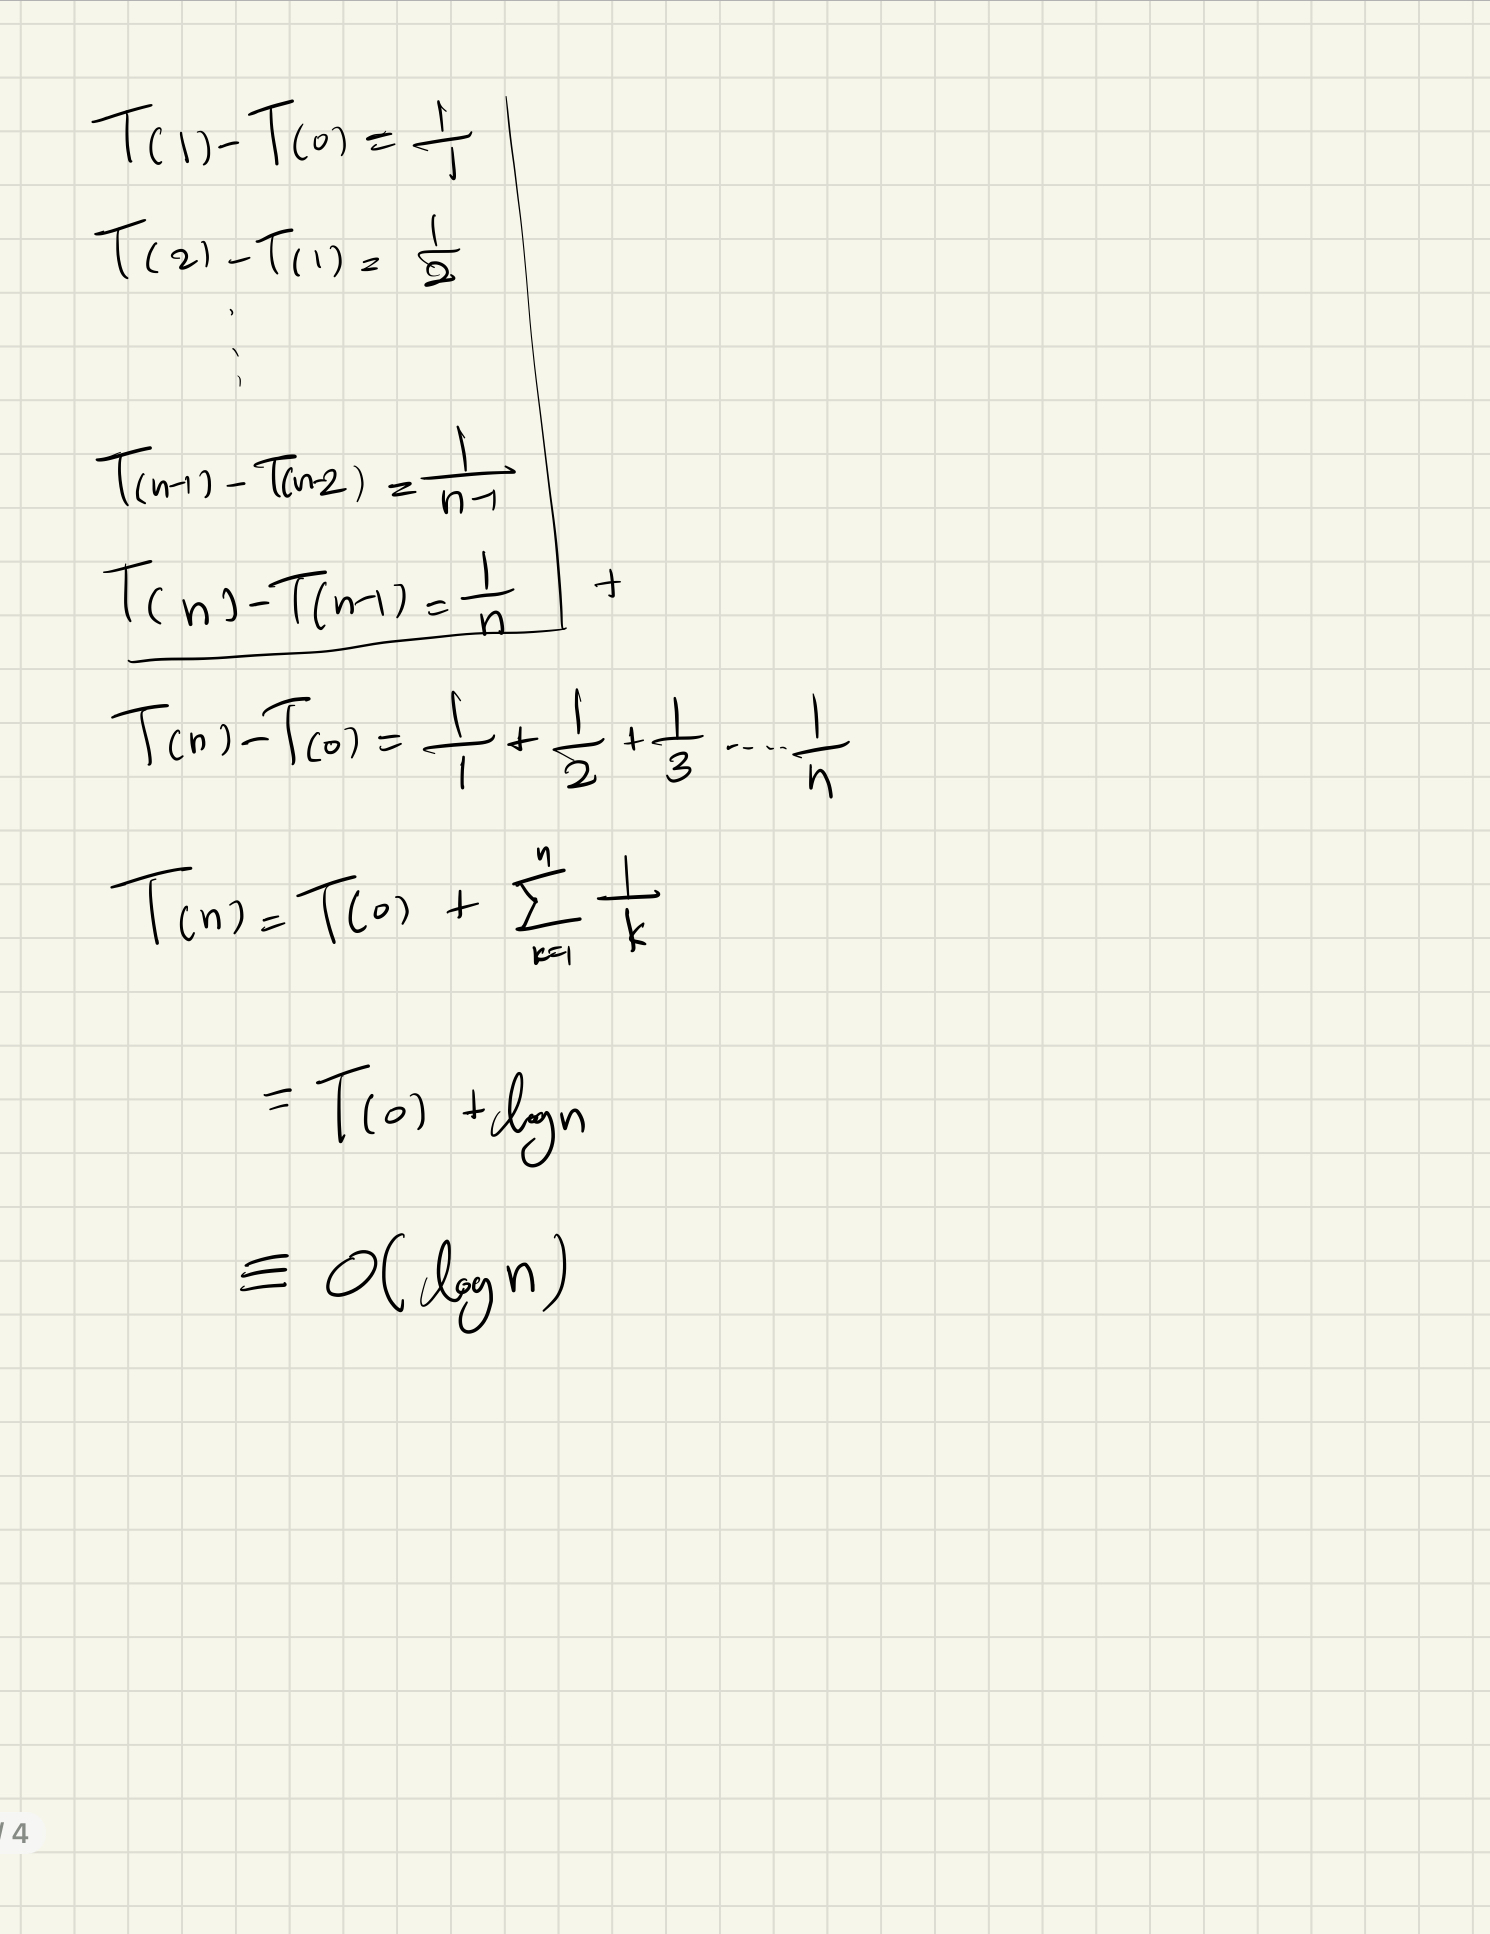 T(1) - T(0) = 1/1
T(2) - T(1) = 1/2
⋮
T(n-1) - T(n-2) = 1/(n-1)
T(n) - T(n-1) = 1/n +
T(n) - T(0) = 1/1 + 1/2 + 1/3 ---- 1/n
T(n) = T(0) + ∑_{k=1}^{n} 1/k
= T(0) + log n
≡ O(log n)
/ 4